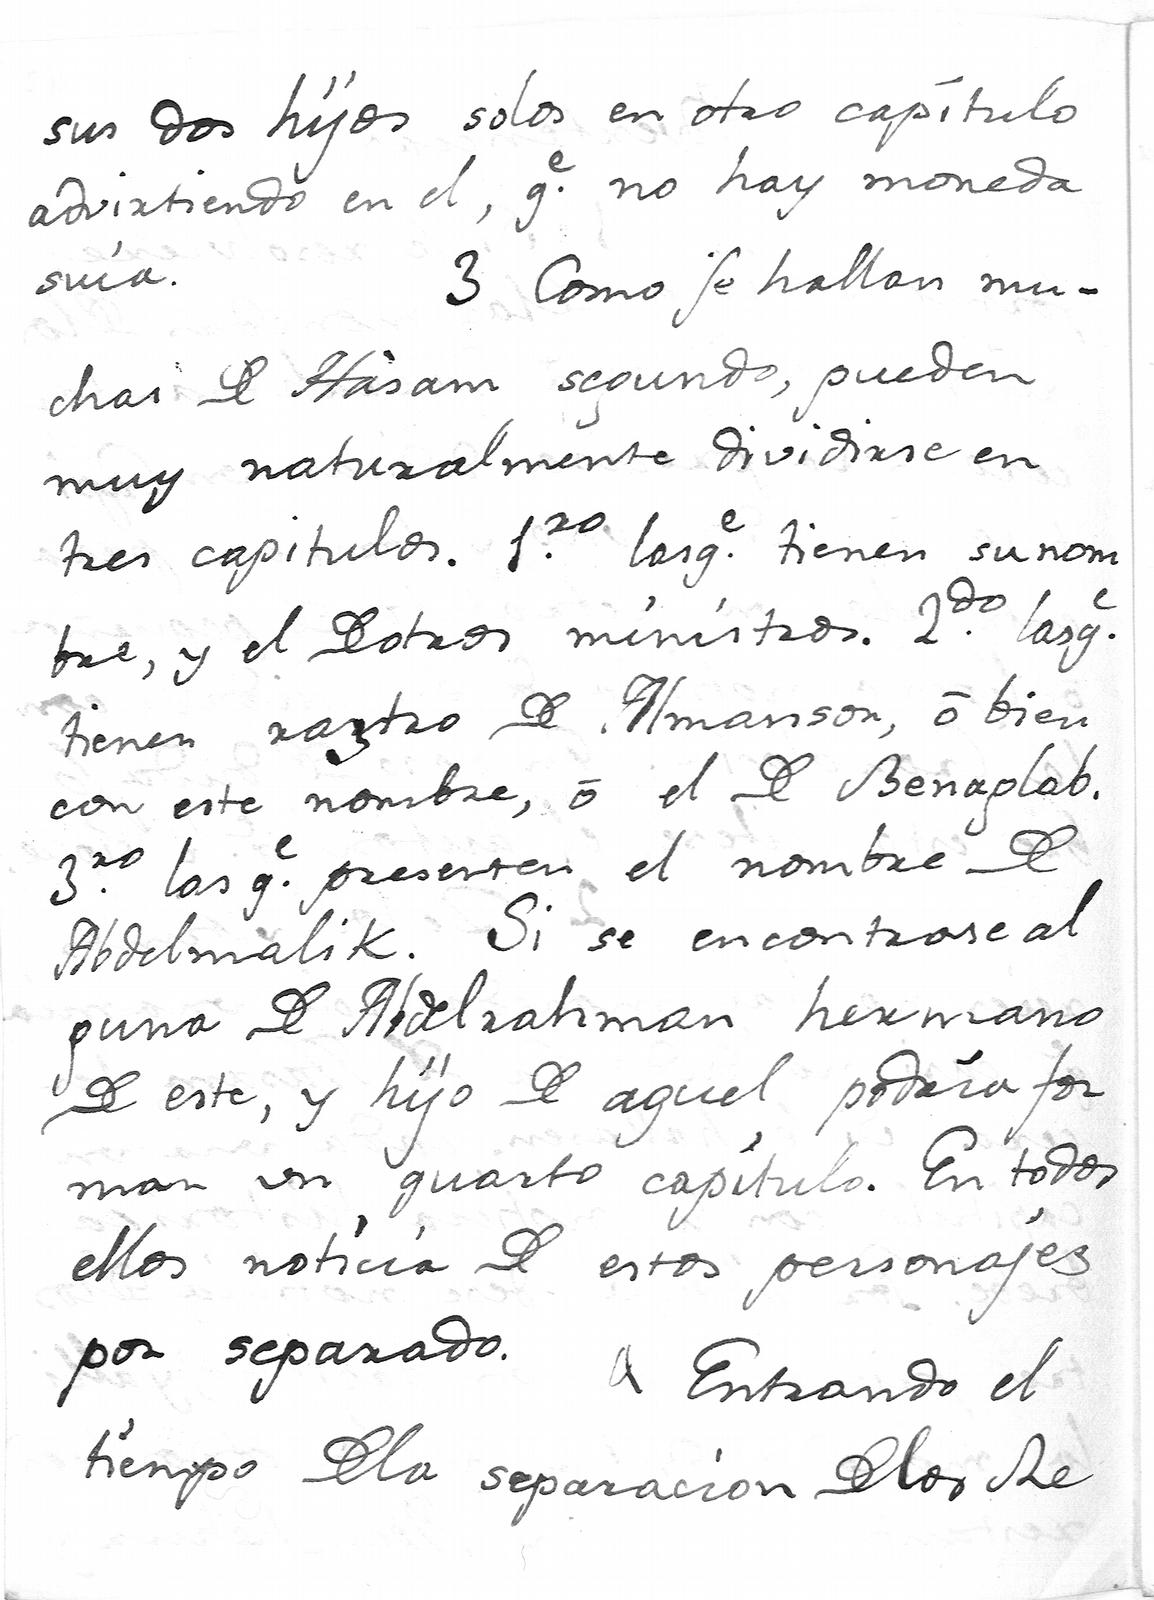 sus dos hijos solos en otro capítulo
advirtiendo en el, q.e no hay moneda
suia.      3 Como se hallan mu-
chas de Hasam segundo, pueden
muy naturalmente dividirse en
tres capitulos. 1.ro las q.e tienen su nom
bre, y el de otros ministros. 2.do las q.e
tienen rastro de Almanson, ō bien
con este nombre, ō el de Benaglab.
3.ro las q.e presenten el nombre de
Abdelmalik. Si se encontrase al
guna de Abdelrahman hermano
de este, y hijo de aquel podría for
mar un quarto capítulo. En todos
ellos noticia de estos personajes
por separado.      Entrando el
tiempo de la separacion de los Re